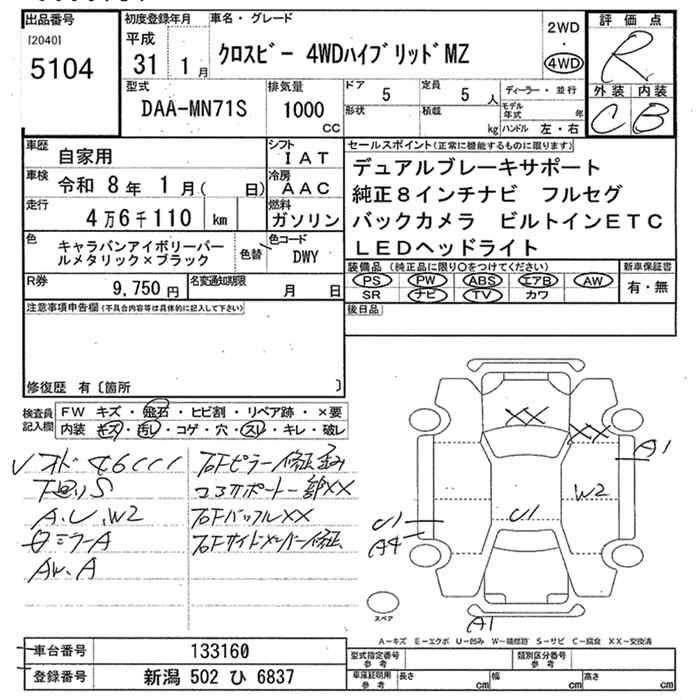 出品番号
[2040]
5104
初度登録年月
平成
31 1月
車名・グレード
クロスビー 4WDハイブリッドMZ
2WD
・
4WD
評価点
R
外装 内装
C B
型式
DAA-MN71S
排気量
1000
CC
ドア 5
定員 5 人
形状
積載 kg
ディーラー・並行
モデル年式 年
ハンドル 左・右
車歴 自家用
シフト IAT
車検 令和 8年 1月( 日)
冷房 AAC
走行 4万6千110 km
燃料 ガソリン
色 キャラバンアイボリーパールメタリック×ブラック
色替
色コード DWY
R券 9,750円
名変通知期限 月 日
セールスポイント(正常に機能するものに限ります)
デュアルブレーキサポート
純正8インチナビ フルセグ
バックカメラ ビルトインETC
LEDヘッドライト
装備品 (純正品に限り○をつけてください)
PS PW ABS エアB AW
SR ナビ TV カワ
新車保証書
有・無
後日品
注意事項申告欄(不具合内容等は具体的に記入して下さい)
修復歴 有〔箇所 〕
検査員記入欄
FW キズ・飛石・ヒビ割・リペア跡・×要
内装 キズ・汚レ・コゲ・穴・スレ・キレ・破レ
46111
右Fピラー修正済み
下回りS
コアサポート一部XX
A.U.W2
右Fバッフル XX
ミラーA
右Fサイドメンバー修正
AW.A
XX
XX
A1
W2
U1
U1
A4
A1
スペア
A-キズ E-エクボ U-凹み W-補修跡 S-サビ C-腐食 XX-交換済
車台番号 133160
登録番号 新潟 502 ひ 6837
型式指定番号 参考
類別区分番号 参考
車庫証明用 参考
長さ cm
幅 cm
高さ cm